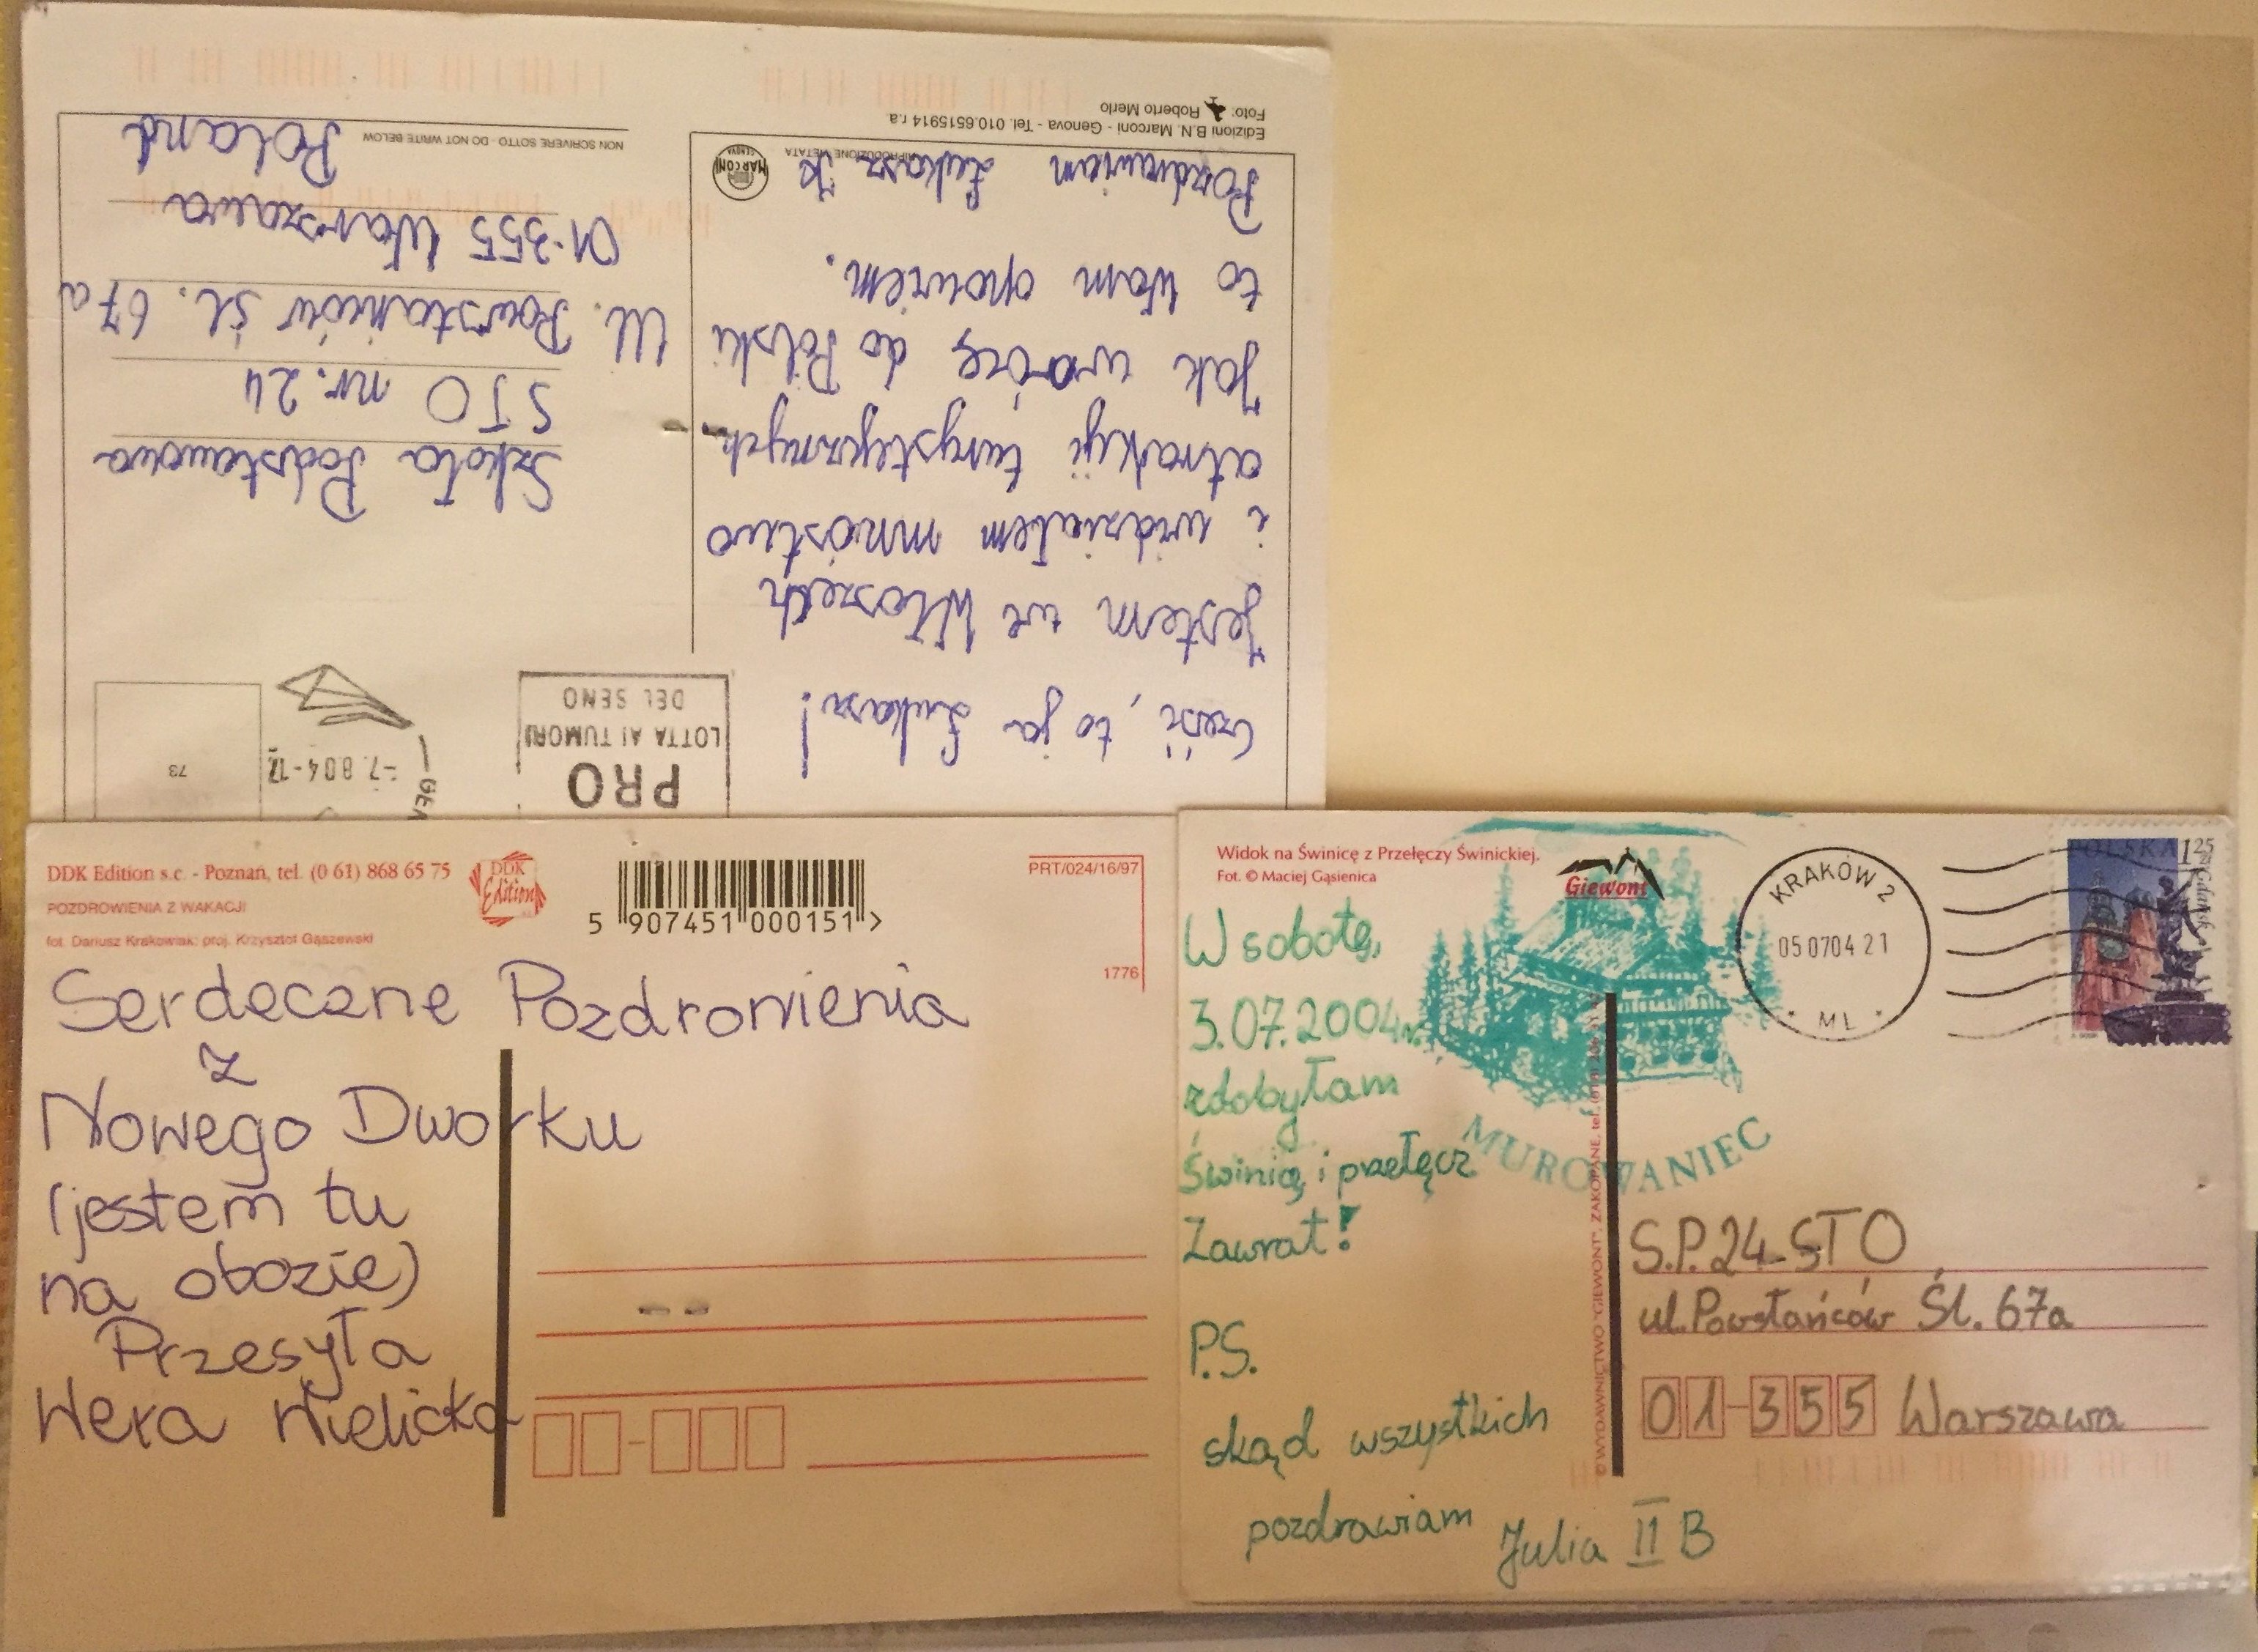 Edizioni B.N. Marconi - Genova - Tel. 010.6515914 r.a.
Foto: Roberto Merlo
RIPRODUZIONE VIETATA
MARCONI
GENOVA
Cześć, to ja Łukasz!
Jestem we Włoszech
i widziałem mnóstwo
atrakcji turystycznych.
Jak wrócę do Polski
to Wam opowiem.
Pozdrawiam Łukasz K
PRO
LOTTA AI TUMORI
DEL SENO
-7.804-17
73
Szkoła Podstawowa
STO nr. 24
Ul. Powstańców śl. 67a
01-355 Warszawa
Poland
NON SCRIVERE SOTTO - DO NOT WRITE BELOW
DDK Edition s.c. - Poznań, tel. (0 61) 868 65 75
POZDROWIENIA Z WAKACJI
fot. Dariusz Krakowiak; proj. Krzysztof Gąszewski
DDK
Edition
5 907451 000151 >
PRT/024/16/97
1776
Serdeczne Pozdrowienia
z
Nowego Dworku
(jestem tu
na obozie)
Przesyła
Wera Nielicka
Widok na Świnicę z Przełęczy Świnickiej.
Fot. © Maciej Gąsienica
Giewont
W sobotę,
3.07.2004r.
zdobyłam
Świnicę i przełęcz
Zawrat!
P.S.
skąd wszystkich
pozdrawiam
Julia II B
MUROWANIEC
KRAKÓW 2
05 0704 21
* ML *
POLSKA 1 25 zł
Gdańsk
© WYDAWNICTWO "GIEWONT", ZAKOPANE, tel.
S.P. 24 STO
ul. Powstańców Śl. 67a
01-355 Warszawa